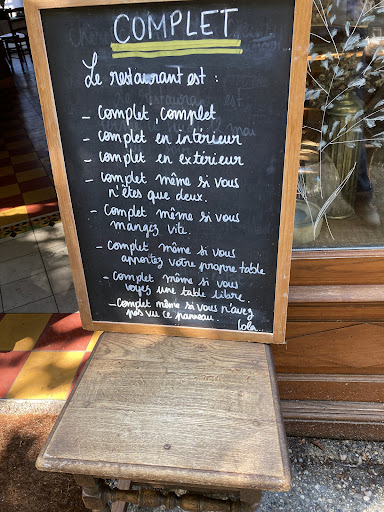 COMPLET
Le restaurant est :
- complet, complet
- complet en intérieur
- complet en extérieur
- complet même si vous
n'êtes que deux.
- Complet même si vous
mangez vite.
- Complet même si vous
apportez votre propre table
- Complet même si vous
voyez une table libre.
- Complet même si vous n'avez
pas vu ce panneau...
Lola